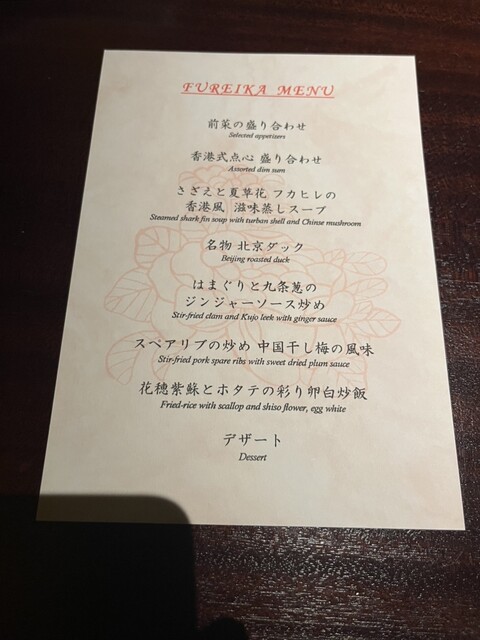 FUREIKA MENU
前菜の盛り合わせ
Selected appetizers
香港式点心 盛り合わせ
Assorted dim sum
さざえと夏草花 フカヒレの
香港風 滋味蒸しスープ
Steamed shark fin soup with turban shell and Chinse mushroom
名物 北京ダック
Beijing roasted duck
はまぐりと九条葱の
ジンジャーソース炒め
Stir-fried clam and Kujo leek with ginger sauce
スペアリブの炒め 中国干し梅の風味
Stir-fried pork spare ribs with sweet dried plum sauce
花穂紫蘇とホタテの彩り卵白炒飯
Fried-rice with scallop and shiso flower, egg white
デザート
Dessert